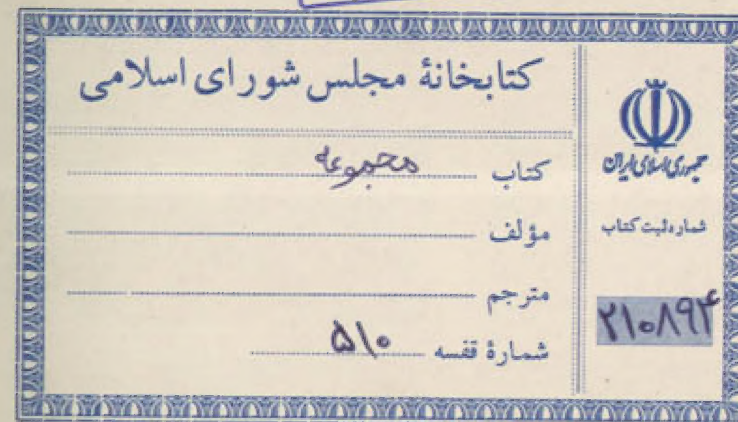 کتابخانهٔ مجلس شورای اسلامی
کتاب مجموعه
مؤلف
مترجم
شمارهٔ قفسه ۵۱۰
جمهوری اسلامی ایران
شماره ثبت کتاب
۲۱۰۸۹۴